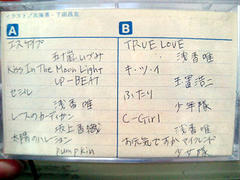 イラスト/北海道・下田昌克
A
エスケイプ
五十嵐いづみ
Kiss In The Moon Light
UP-BEAT
セシル
浅香唯
レースのカーディガン
坂上香織
太陽のハレーション
Pumpkin
B
TRUE LOVE
浅香唯
キ・ツ・イ
玉置浩二
ふたり
少年隊
C-Girl
浅香唯
お元気ですかマイフレンド
少女隊